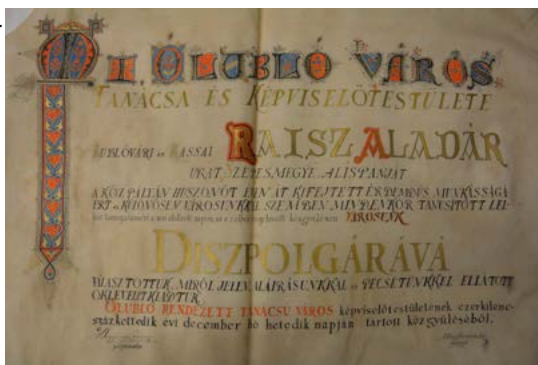 MI, ÓLUBLÓ VÁROS
TANÁCSA ÉS KÉPVISELŐTESTÜLETE
LUBLÓVÁRI ÉS KASSAI RAISZ ALADÁR
URAT SZEPESMEGYE ALISPÁNJÁT
A KÖZ PÁLYÁN HUSZONÖT ÉVEN ÁT KIFEJTETT ÉRDEMDÚS MUNKÁSSÁGA
ÉRT ÉS KÜLÖNÖSEN VÁROSUNKKAL SZEMBEN MINDENKOR TANUSÍTOTT
VÁROSUNK
DISZPOLGÁRÁVÁ
VÁLASZTOTTUK, MIRŐL JELEN ALÁIRÁSUNKKAL ÉS PECSÉTÜNKKEL ELLÁTOTT
OKLEVELET KIADTUK
ÓLUBLÓ RENDEZETT TANÁCSU VÁROS képviselőtestületének ezerkilenc-
százkettedik évi december hó hetedik napján tartott közgyüléséből.